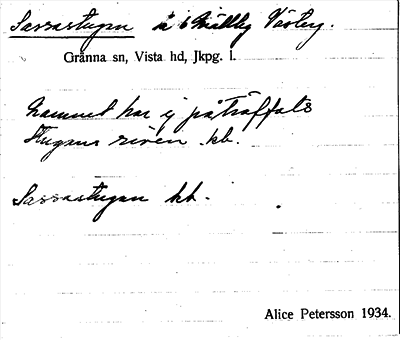 Sassastugan å
Gränna sn, Vista hd, Jkpg. l.
Namnet har ej påträffats
Stugans riven. kb.
Sassastugan kb.
Alice Petersson 1934.